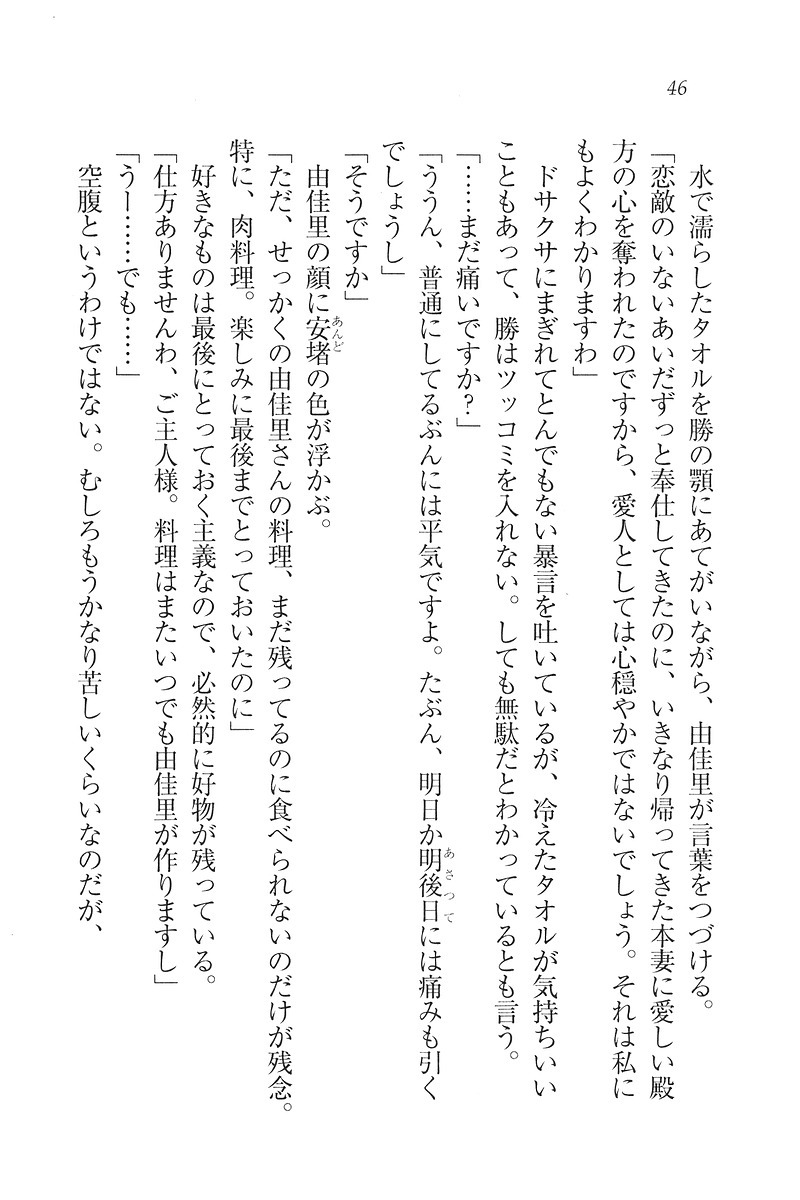 46
水で濡らしたタオルを勝の顎にあてがいながら、由佳里が言葉をつづける。
「恋敵のいないあいだずっと奉仕してきたのに、いきなり帰ってきた本妻に愛しい殿
方の心を奪われたのですから、愛人としては心穏やかではないでしょう。それは私に
もよくわかりますわ」
ドサクサにまぎれてとんでもない暴言を吐いているが、冷えたタオルが気持ちいい
こともあって、勝はツッコミを入れない。しても無駄だとわかっているとも言う。
「……まだ痛いですか？」
「ううん、普通にしてるぶんには平気ですよ。たぶん、明日か明後日には痛みも引く
でしょうし」
「そうですか」
由佳里の顔に安堵の色が浮かぶ。
「ただ、せっかくの由佳里さんの料理、まだ残ってるのに食べられないのだけが残念。
特に、肉料理。楽しみに最後までとっておいたのに」
好きなものは最後にとっておく主義なので、必然的に好物が残っている。
「仕方ありませんわ、ご主人様。料理はまたいつでも由佳里が作りますし」
「うー……でも……」
空腹というわけではない。むしろもうかなり苦しいくらいなのだが、